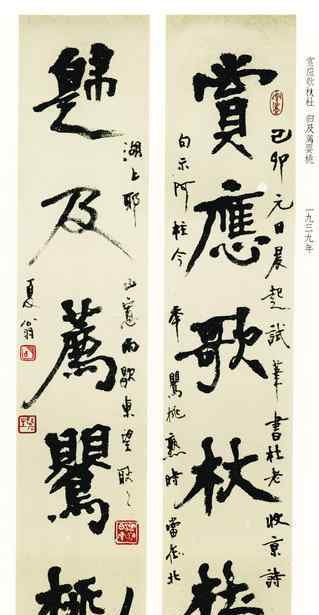 賞應歌杕杜 歸及薦鸎桃 一九三九年
賞應歌杕
己卯元日晨起試筆書杜老收京詩
句示阿柱今年鸎桃熟時當 北
歸及薦鸎桃
湖上耶
山窗雨歇東望耿々
夏翁